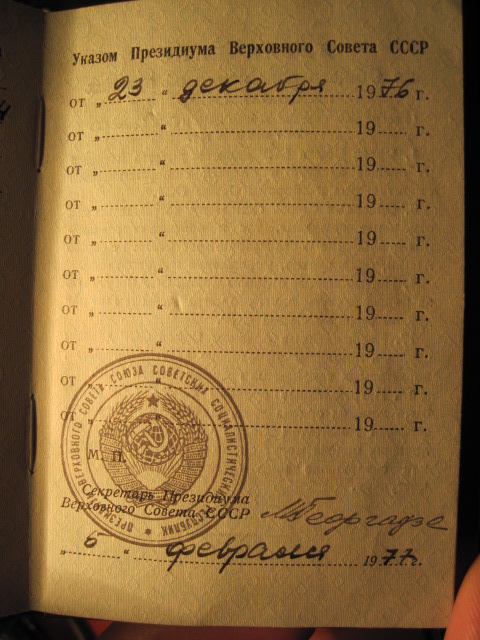 Указом Президиума Верховного Совета СССР
от „ 23 “ декабря 1976 г.
от „ “ 19 г.
от „ “ 19 г.
от „ “ 19 г.
от „ “ 19 г.
от „ “ 19 г.
от „ “ 19 г.
от „ “ 19 г.
от „ “ 19 г.
от „ “ 19 г.
ПРЕЗИДИУМ ВЕРХОВНОГО СОВЕТА СОЮЗА СОВЕТСКИХ СОЦИАЛИСТИЧЕСКИХ РЕСПУБЛИК
М. П.
Секретарь Президиума
Верховного Совета СССР МГеоргадзе
„ 5 “ февраля 1977 г.